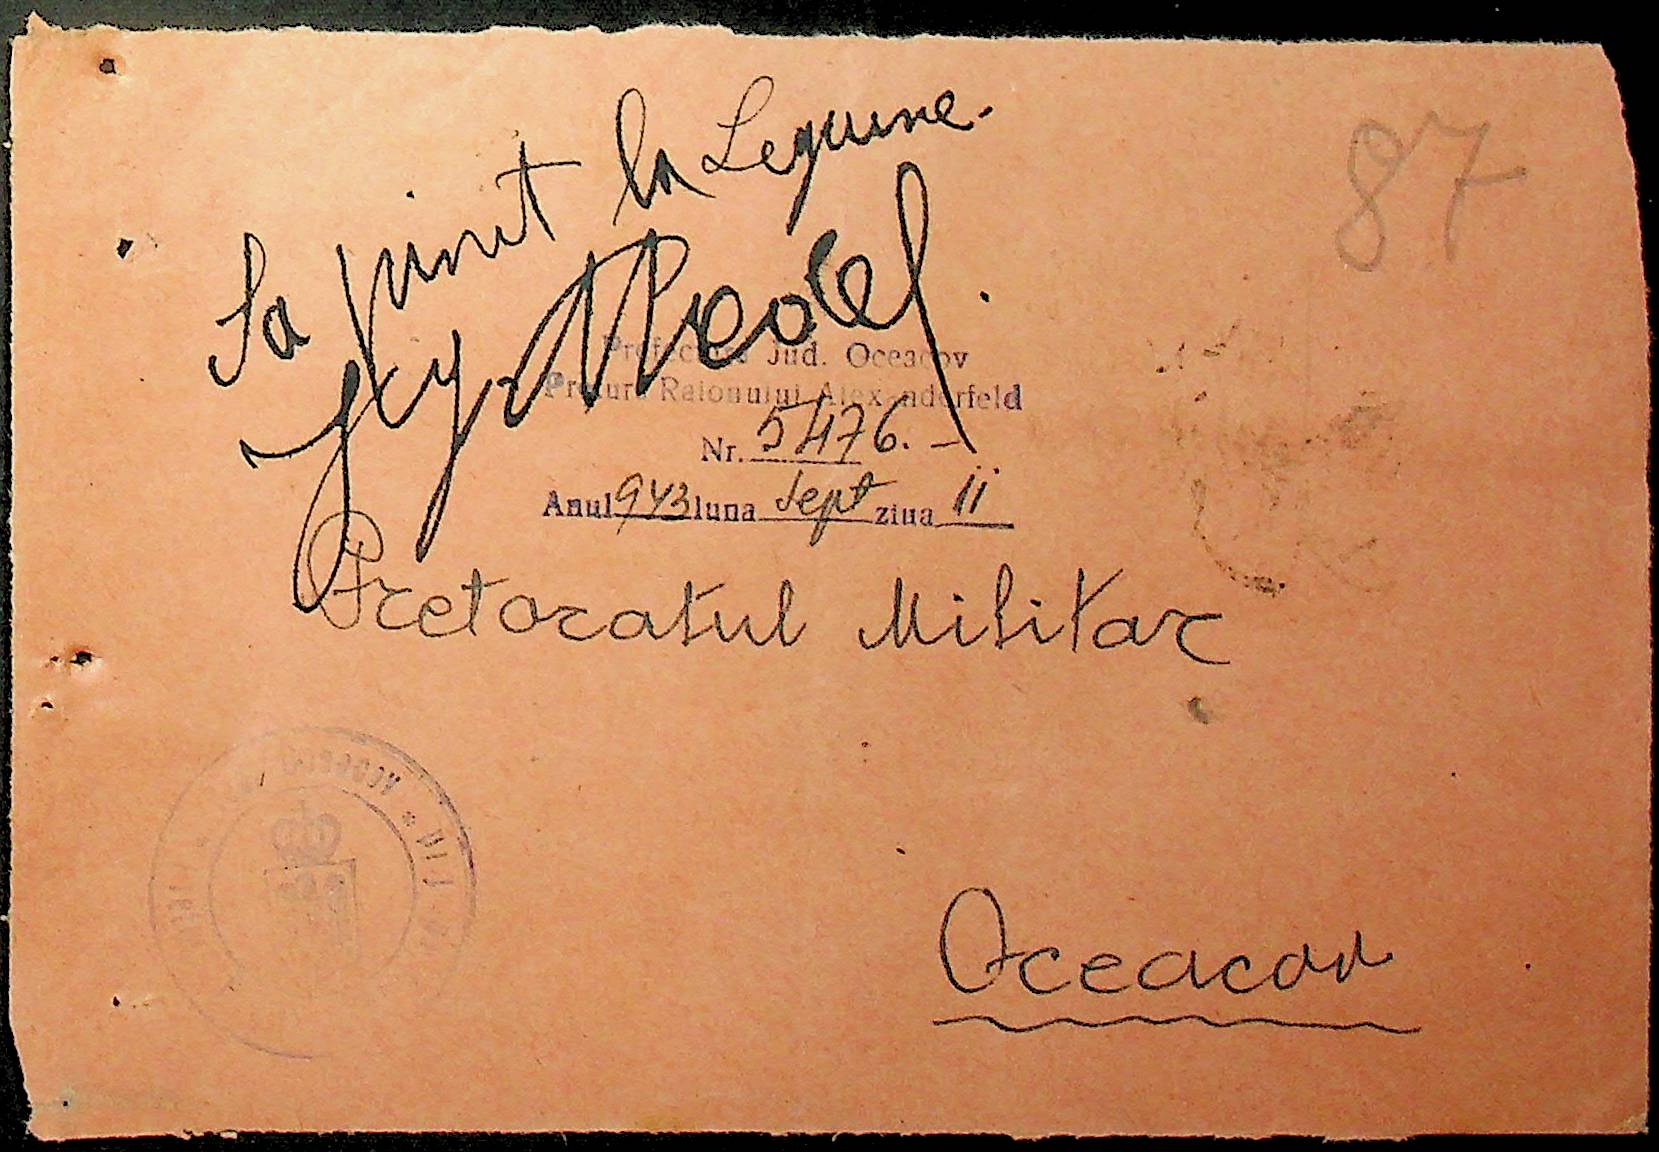 87
Sa primit la Legiune.
Prefectura Jud. Oceacov
Pretura Raionului Alexanderfeld
Nr. 5476. -
Anul 943 luna Sept ziua 11
Pretoratul Militar
Oceacov